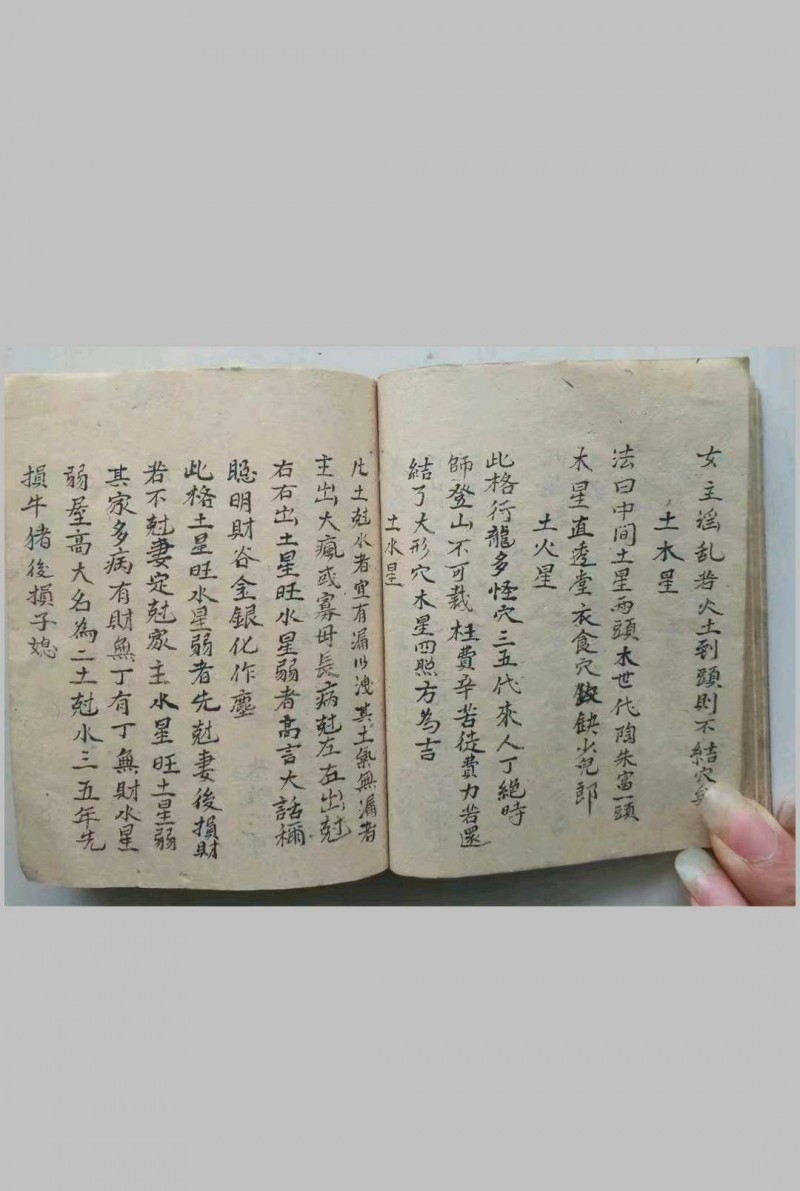 女主淫乱若火土到頭則不結穴矣
土木星
法曰中間土星两頭木世代陶朱富一頭
木星直透堂衣食穴缺少児郎
土火星
此格行龍多怪穴三五代來人丁絕時
師登山不可裁枉費辛苦徒費力若還
結了大形穴木星四照方為吉
土水星
凡土尅水者宜有漏以洩其土氣無漏者
主出大瘋或寡母長病尅左在出尅
右右出土星旺水星弱者高言大話稱
聪明財谷金銀化作塵
此格土星旺水星弱者先尅妻後損財
若不尅妻定尅家主水星旺土星弱
其家多病有財無丁有丁無財水星
弱屋高大名為二土尅水三五年先
損牛猪後損子媳